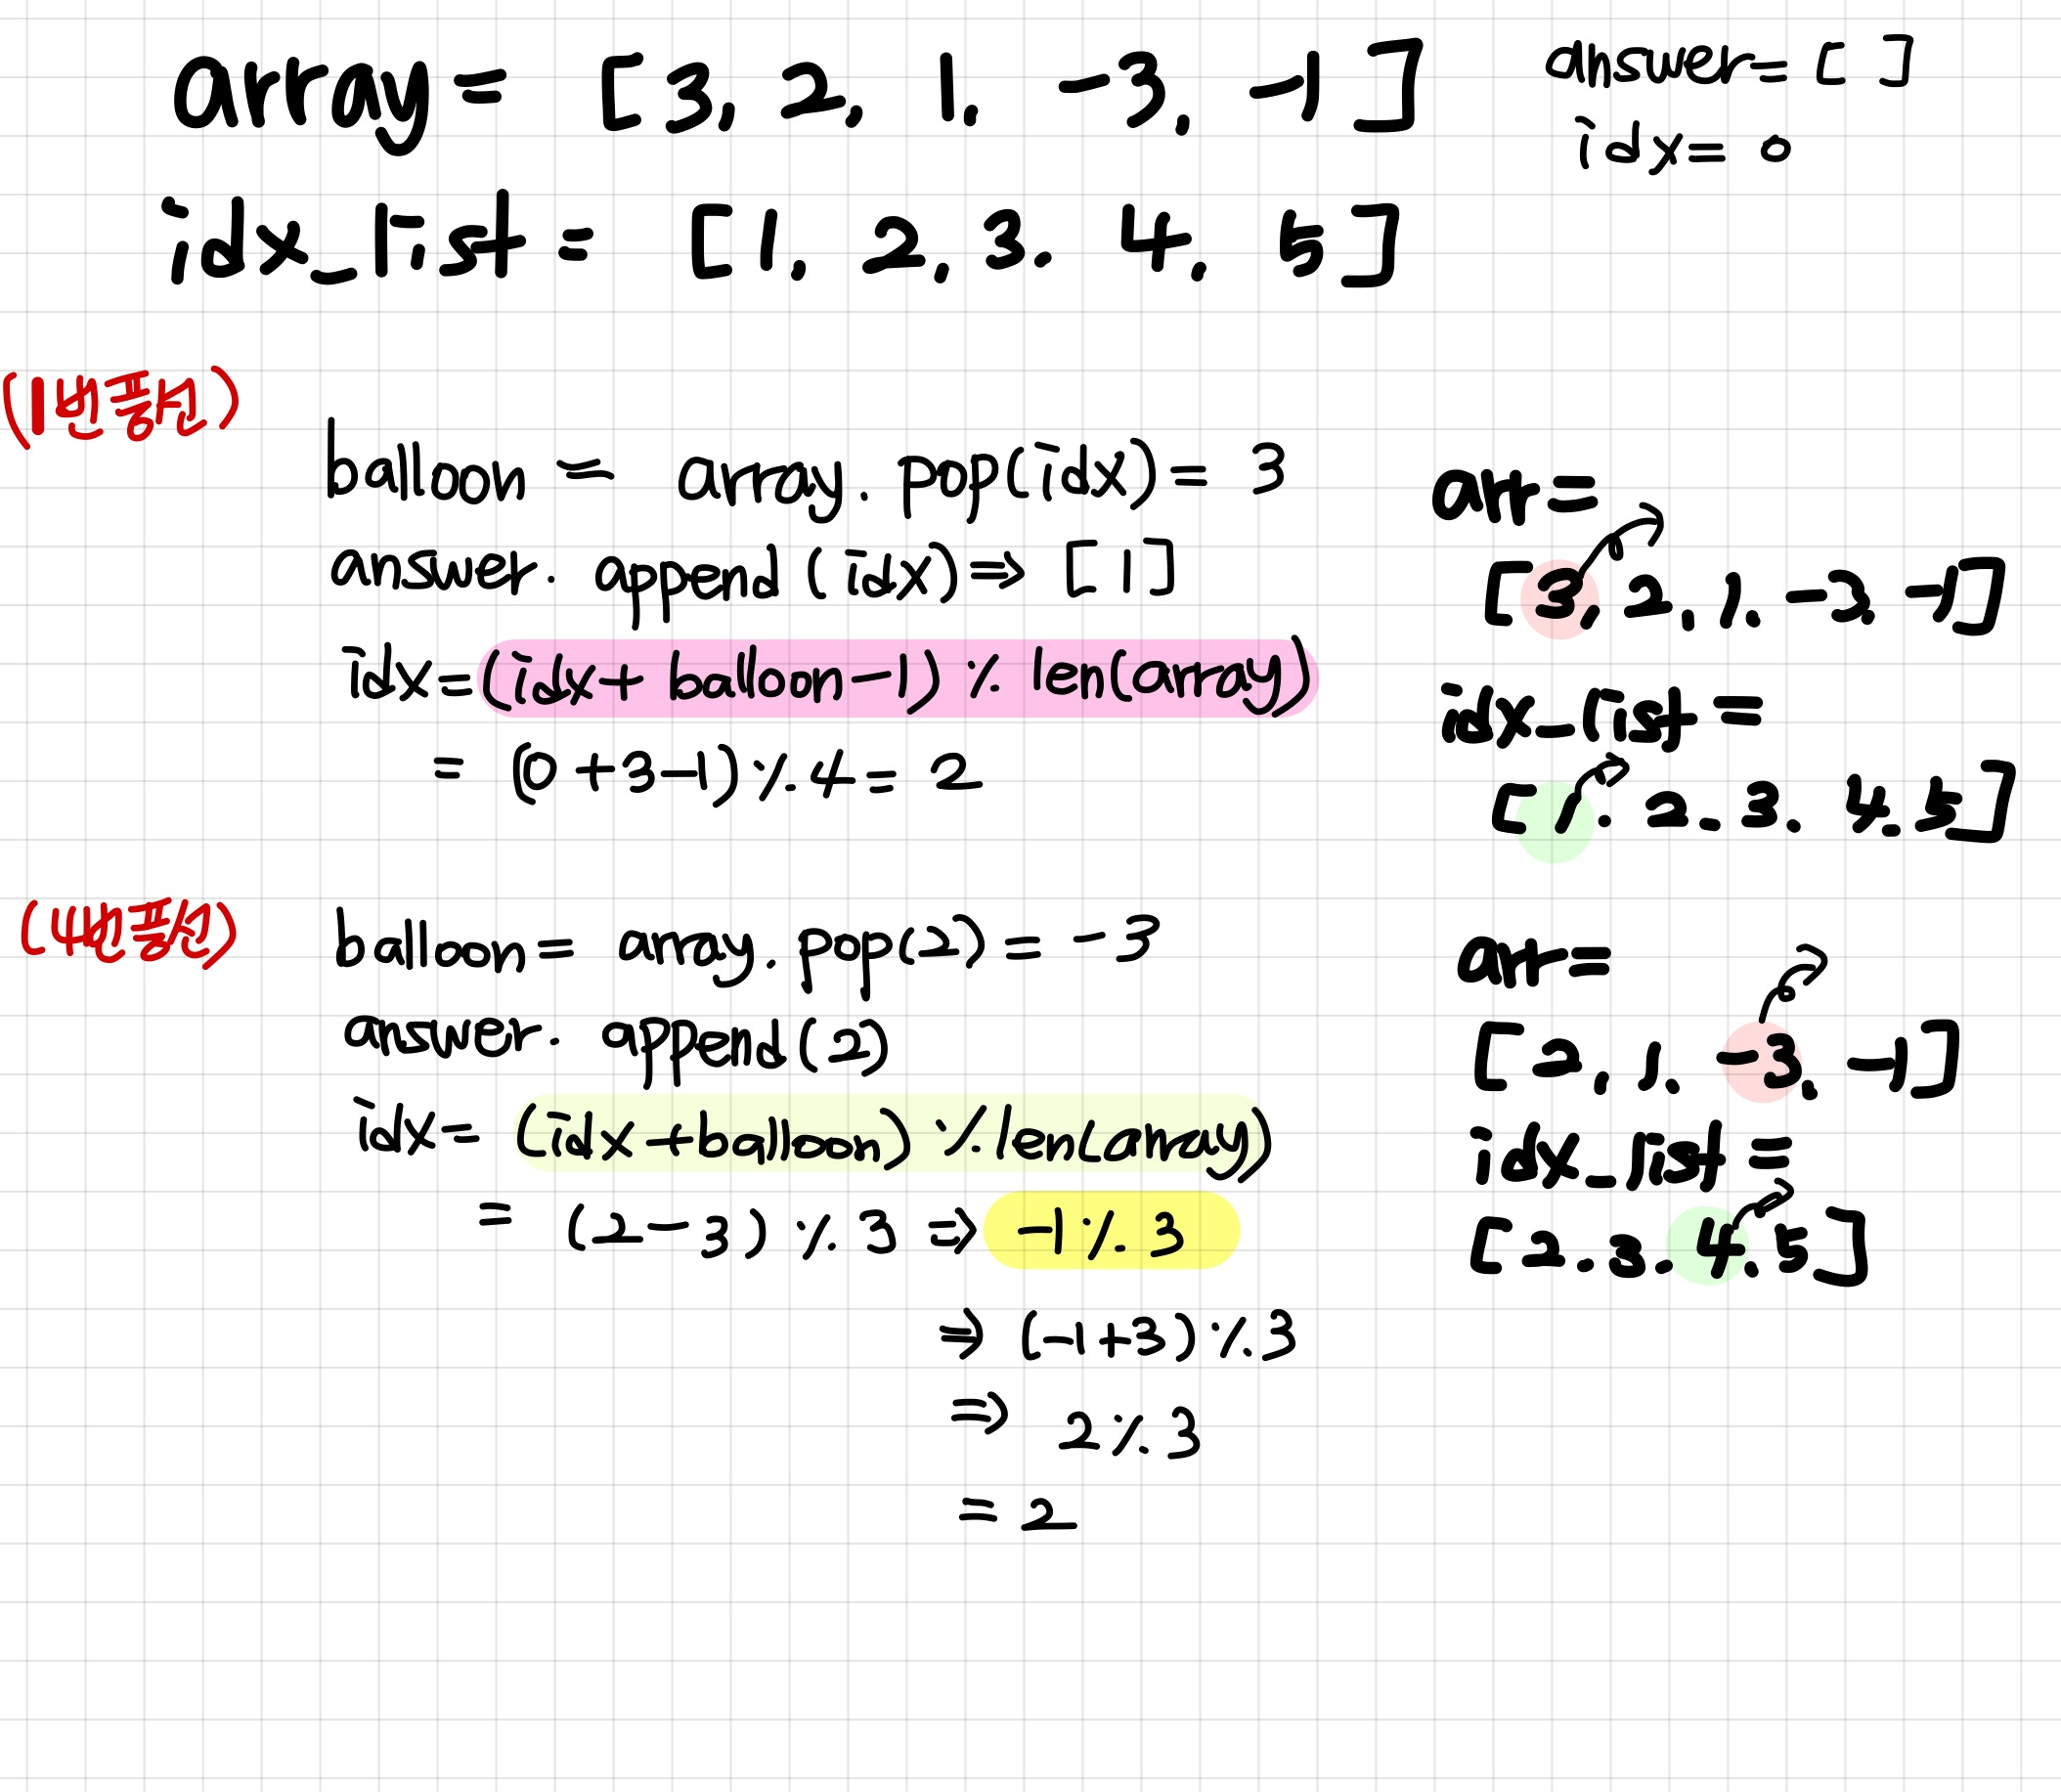 array = [3, 2, 1, -3, -1]
answer = [ ]
idx = 0
idx_list = [1, 2, 3, 4, 5]
(1번 풍선)
balloon = array.pop(idx) = 3
answer.append(idx) => [1]
idx = (idx + balloon - 1) % len(array)
= (0 + 3 - 1) % 4 = 2
arr =
[3, 2, 1, -3, -1]
idx_list =
[1, 2, 3, 4, 5]
(4번 풍선)
balloon = array.pop(2) = -3
answer.append(2)
idx = (idx + balloon) % len(array)
= (2 - 3) % 3 => -1 % 3
=> (-1+3) % 3
=> 2 % 3
= 2
arr =
[2, 1, -3, -1]
idx_list =
[2, 3, 4, 5]